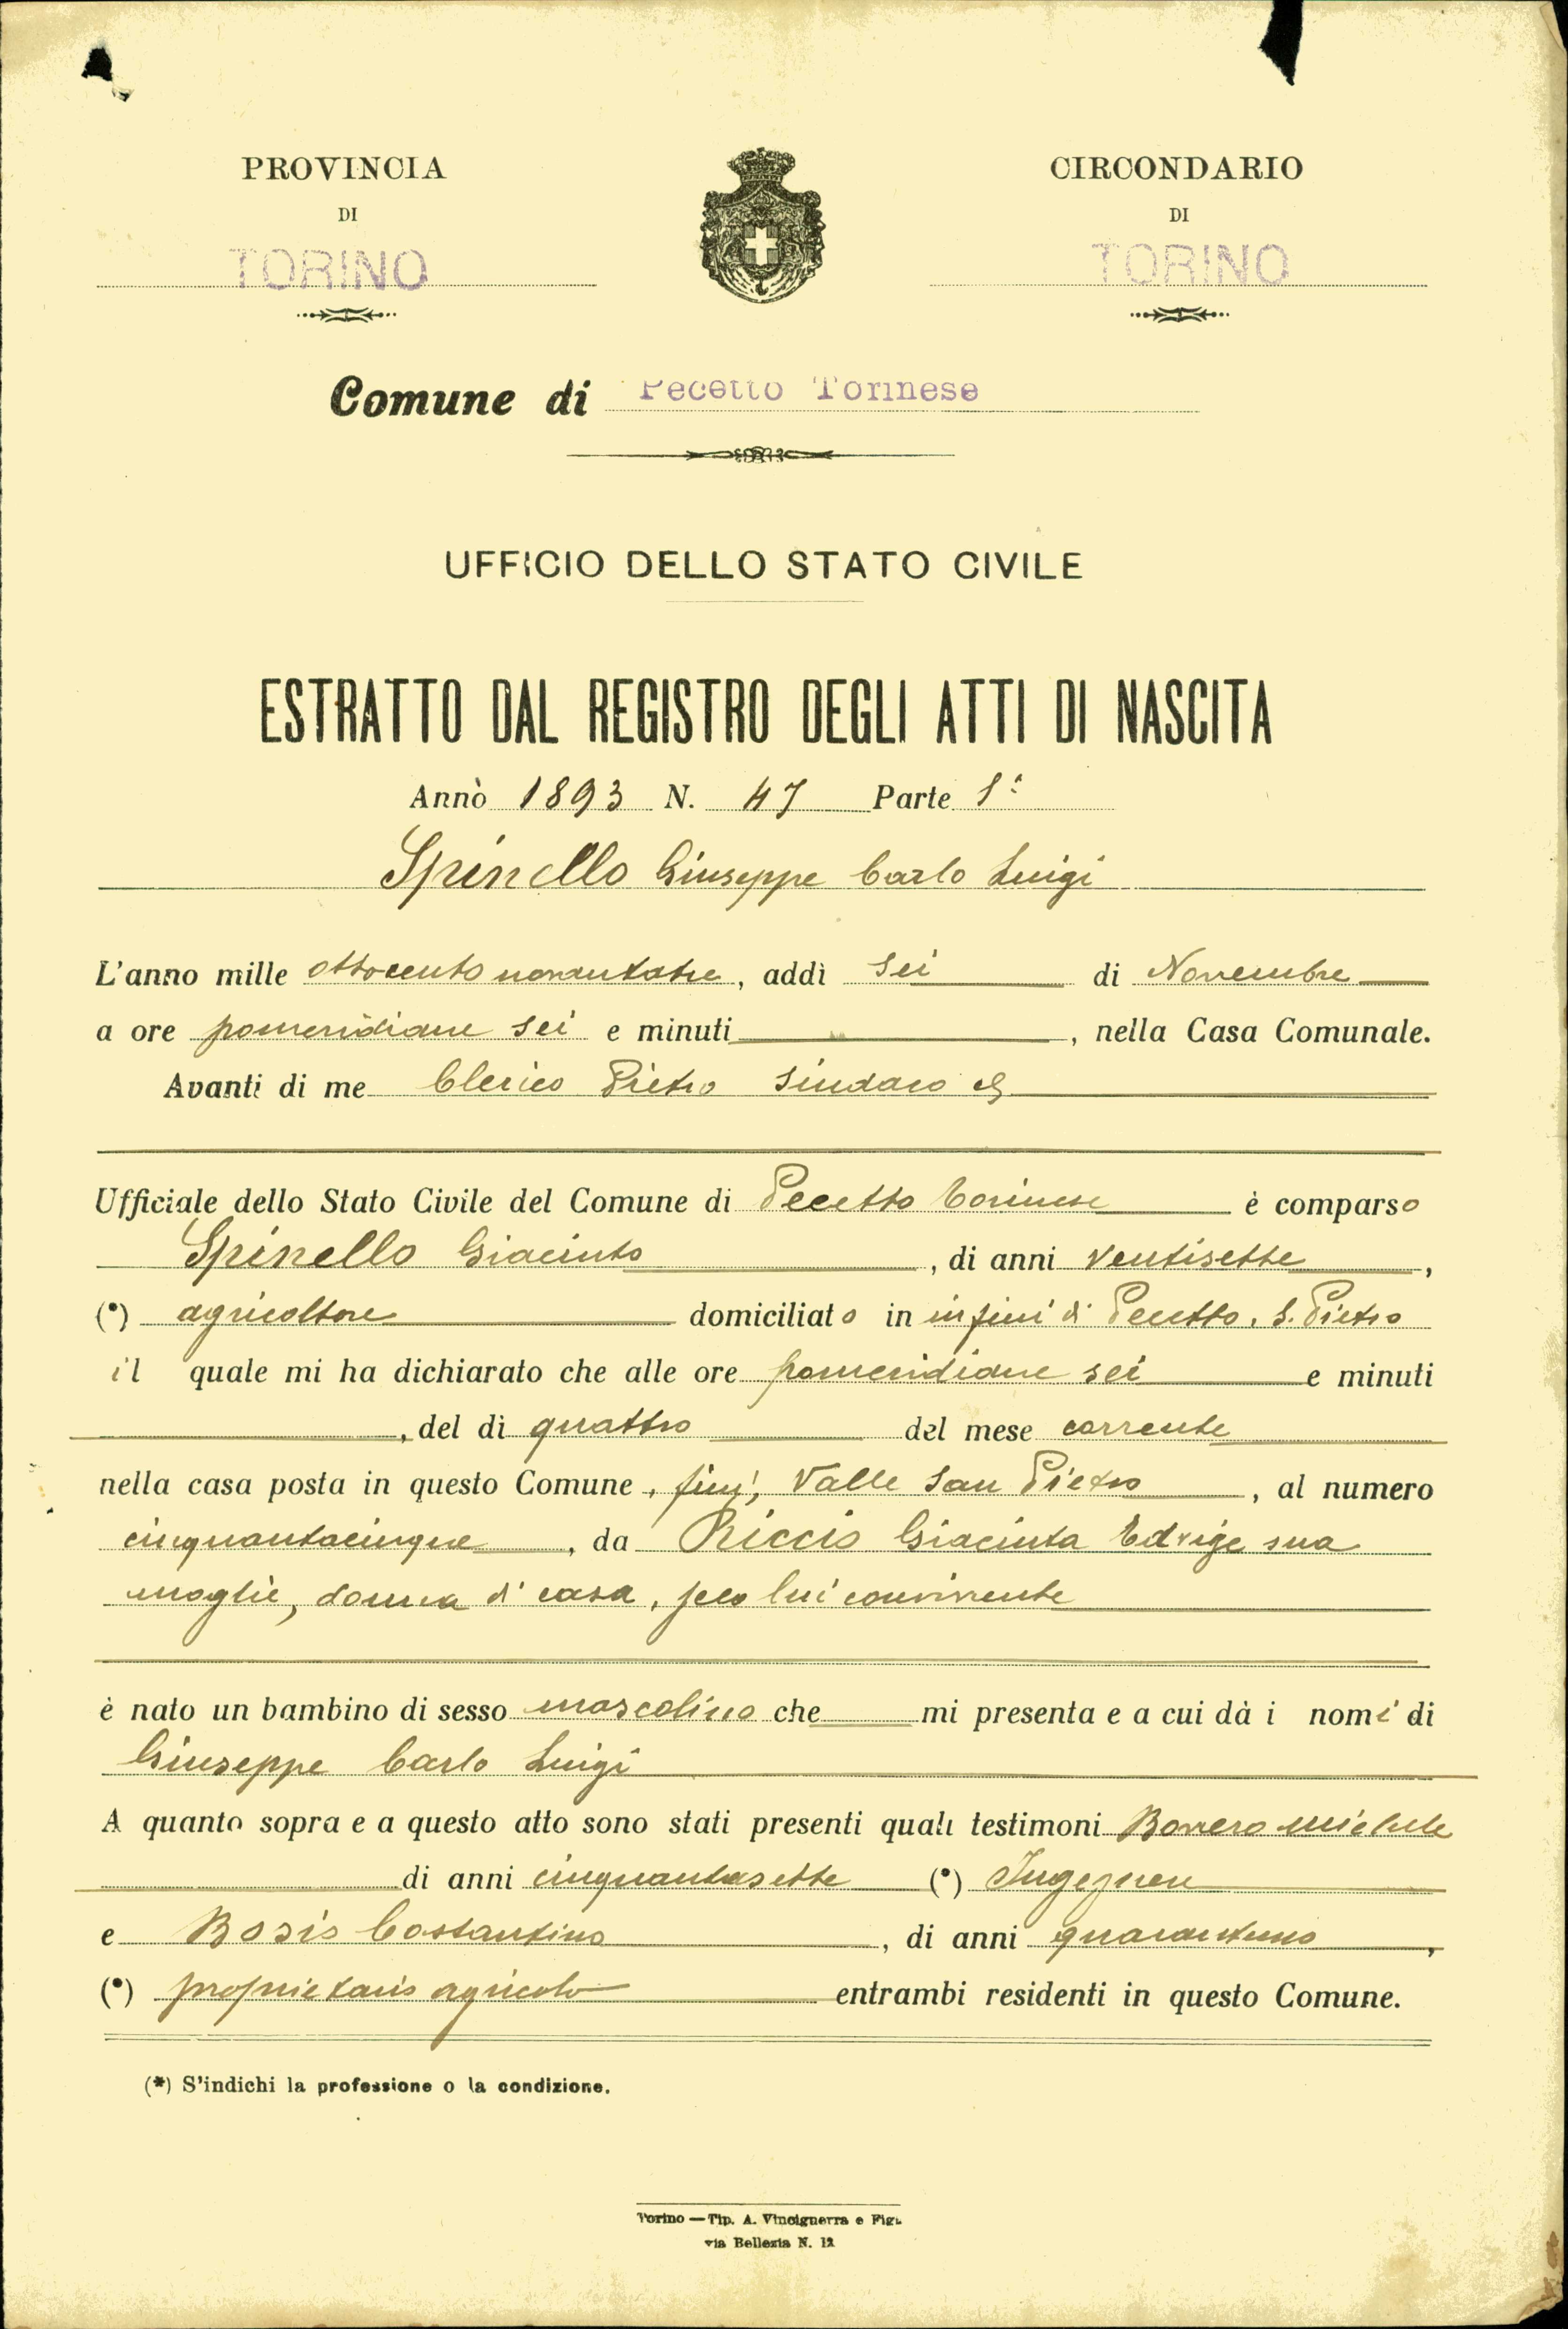 PROVINCIA
DI
TORINO
CIRCONDARIO
DI
TORINO
Comune di Pecetto Torinese
UFFICIO DELLO STATO CIVILE
ESTRATTO DAL REGISTRO DEGLI ATTI DI NASCITA
Anno 1893 N. 47 Parte 1ª
Spinello Giuseppe Carlo Luigi
L'anno mille ottocento novantatre, addì sei di Novembre
a ore pomeridiane sei e minuti , nella Casa Comunale.
Avanti di me Clerico Pietro Sindaco
Ufficiale dello Stato Civile del Comune di Pecetto Torinese è comparso
Spinello Giacinto, di anni ventisette,
(*) agricoltore domiciliato in in fini di Pecetto, S. Pietro
il quale mi ha dichiarato che alle ore pomeridiane sei e minuti
, del dì quattro del mese corrente
nella casa posta in questo Comune, fini, Valle San Pietro, al numero
cinquantacinque, da Riccio Giacinta Edvige sua
moglie, donna di casa, seco lui convivente
è nato un bambino di sesso mascolino che mi presenta e a cui dà i nomi di
Giuseppe Carlo Luigi
A quanto sopra e a questo atto sono stati presenti quali testimoni Borrero Michele
di anni cinquantasette (*) Ingegnere
e Bosis Costantino, di anni quarantuno,
(*) proprietario agricolo entrambi residenti in questo Comune.
(*) S'indichi la professione o la condizione.
Torino — Tip. A. Vincignerra e Figli
via Bellezia N. 12